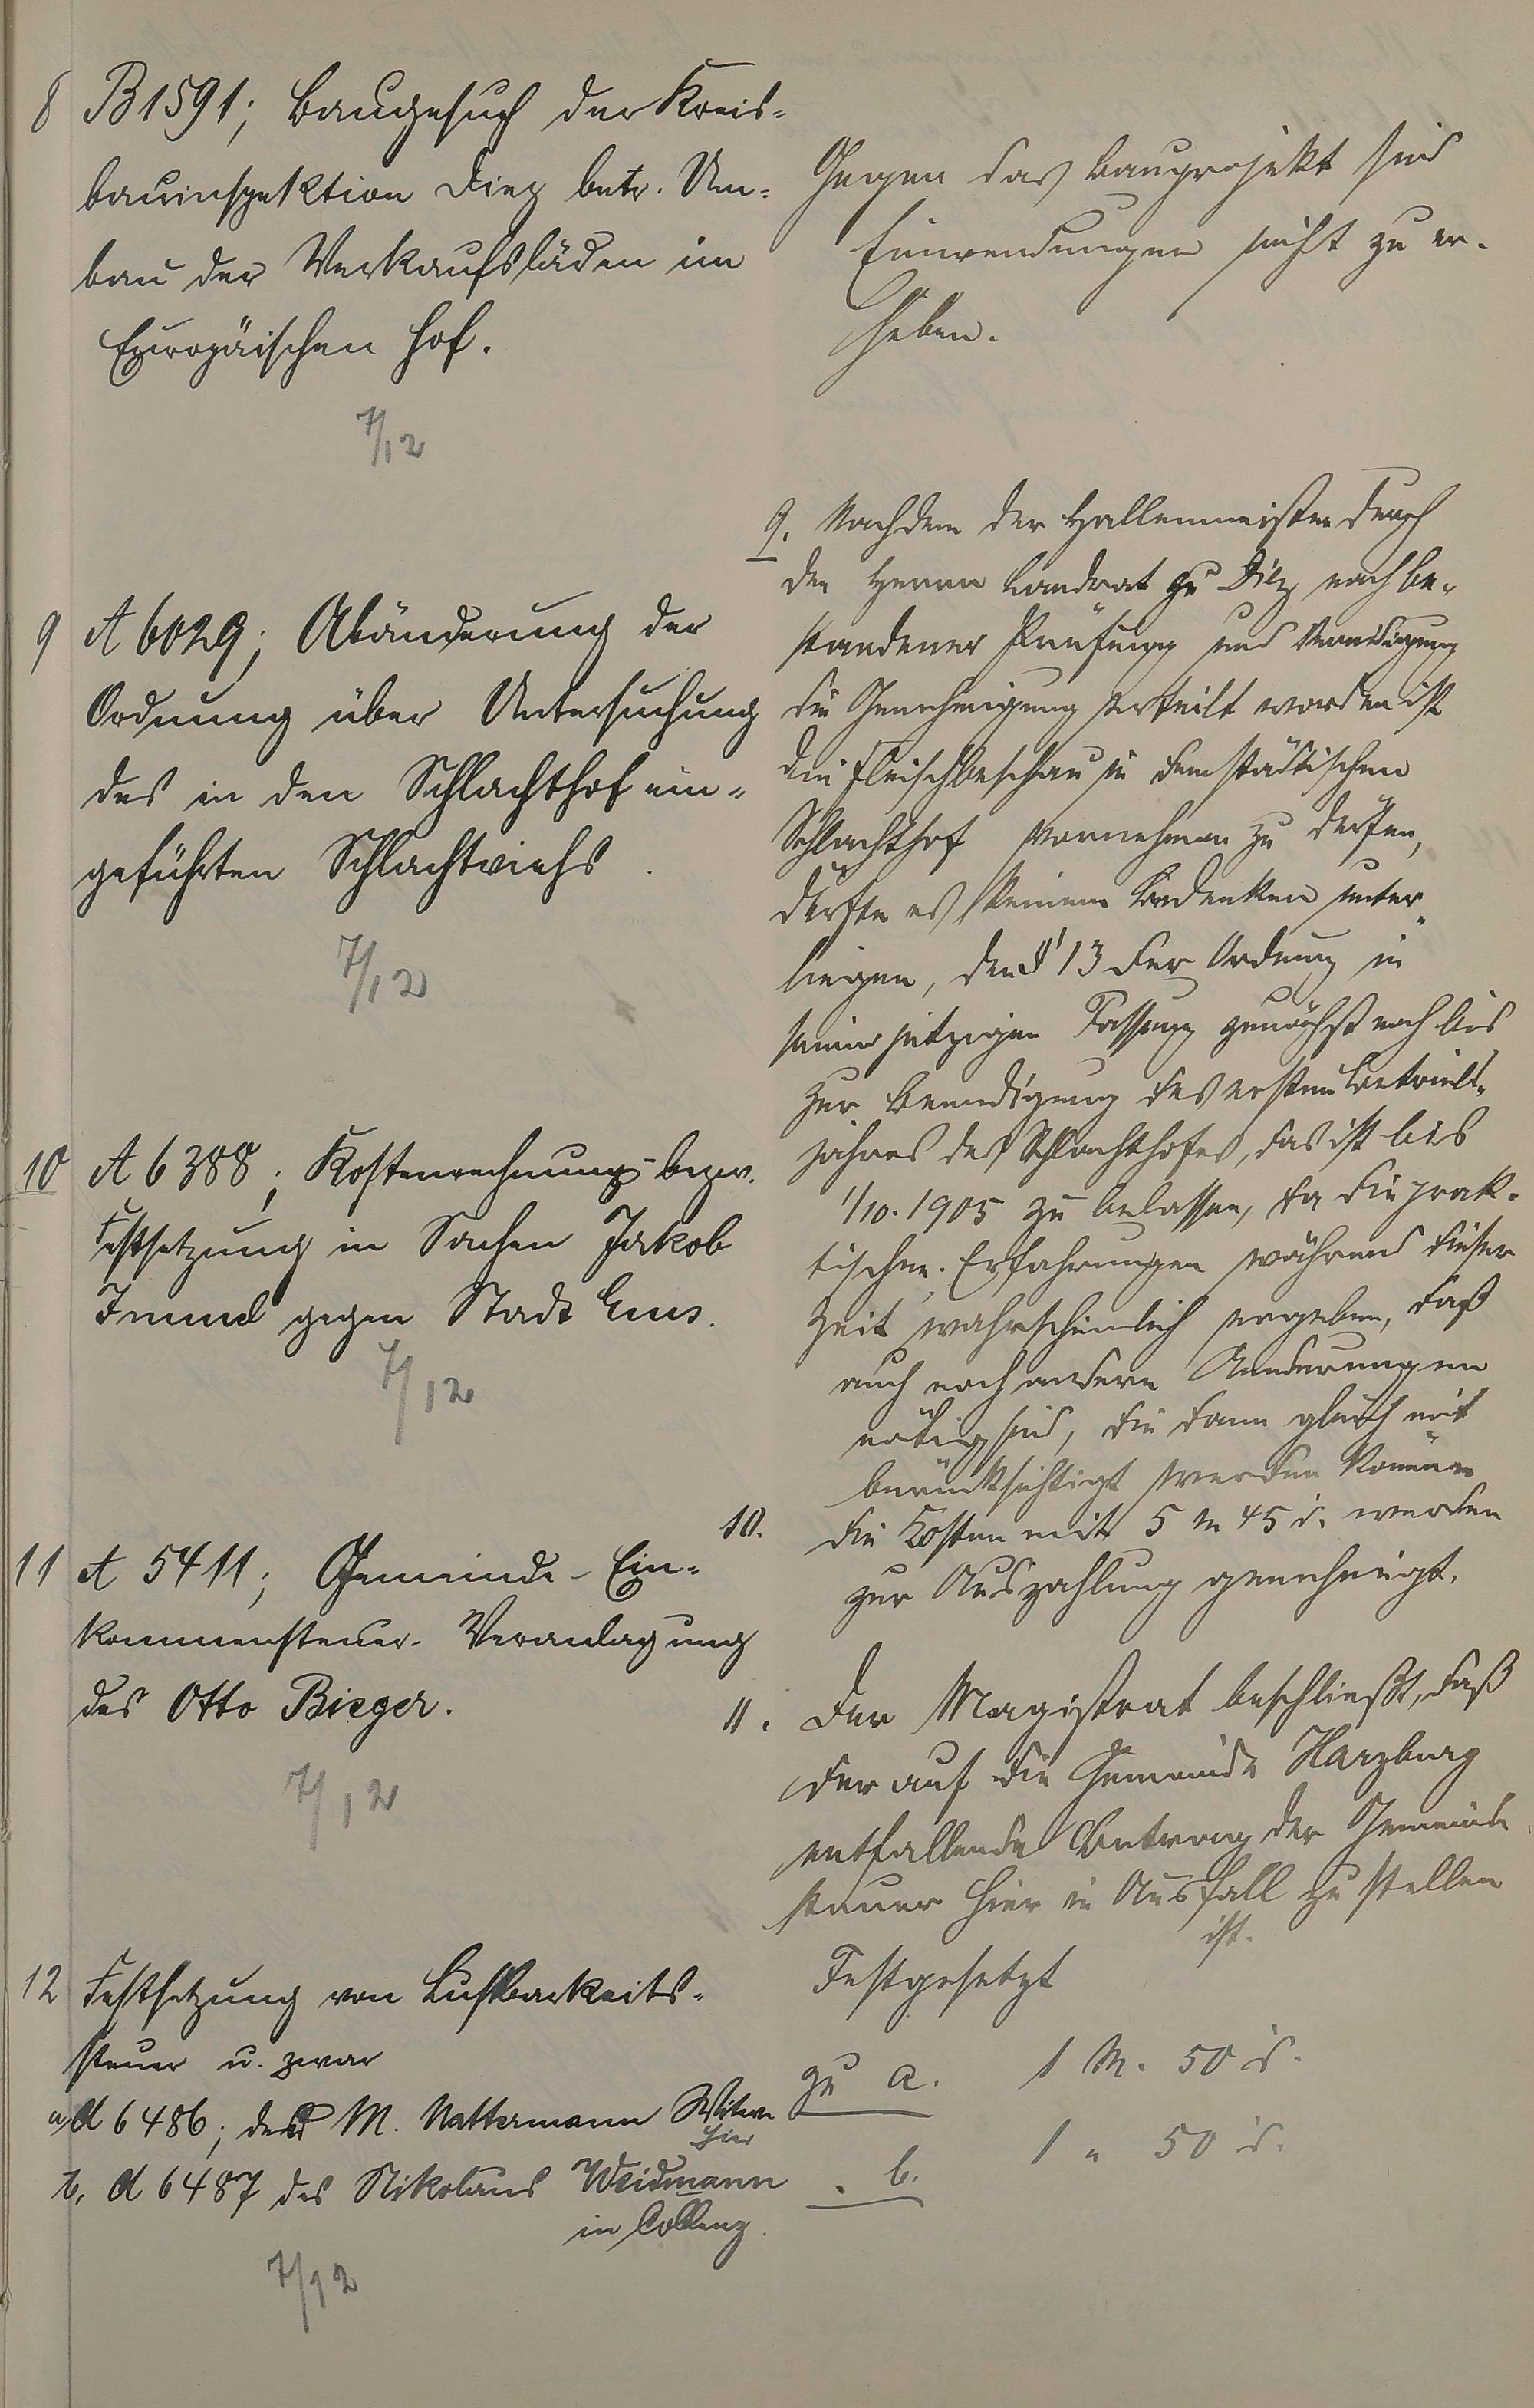 8 B 1591; Baugesuch der Kreis-
bauinspektion Diez betr. Um-
bau der Verkaufsläden im
Europäischen Hof.
7/12
Gegen das Bauprojekt sind
Einwendungen nicht zu er-
heben.
9 A 6029; Abänderung der
Ordnung über Untersuchung
des in den Schlachthof ein-
geführten Schlachtviehs.
7/12
9. Nachdem der Hallenmeister durch
den Herrn Landrat zu Diez nach be-
standener Prüfung und Vereidigung
die Genehmigung erteilt worden ist
die Fleischbeschau in dem städtischen
Schlachthof vornehmen zu dürfen,
dürfte es keinem Bedenken unter-
liegen, den § 13 der Ordnung in
seiner jetzigen Fassung zunächst noch bis
zur Beendigung des ersten Betriebs-
jahres des Schlachthofes, das ist bis
1/10. 1905 zu belassen, da die prak-
tischen Erfahrungen während dieser
Zeit wahrscheinlich ergeben, daß
auch noch andere Aenderungen
nötig sind, die dann gleich mit
berücksichtigt werden können
10 A 6388; Kostenrechnung bezw.
Festsetzung in Sachen Jakob
gegen Stadt Ems.
7/12
10. Die Kosten mit 5 M 45 d. werden
zur Auszahlung genehmigt.
11 A 5411; Gemeinde-Ein-
kommensteuer-Veranlagung
des Otto Bieger.
7/12
11. Der Magistrat beschließt, daß
der auf die Gemeinde Harzburg
entfallende Betrag der Gemeinde-
steuer hier in Ausfall zu stellen
ist.
12 Festsetzung von Lustbarkeits-
steuer u. zwar
a, A 6486; der M. Nattermann Witwe
hier
b, A 6487 des Nikolaus Weidmann
in Coblenz.
7/12
Festgesetzt
zu a. 1 M. 50 d.
" b. 1 " 50 d.